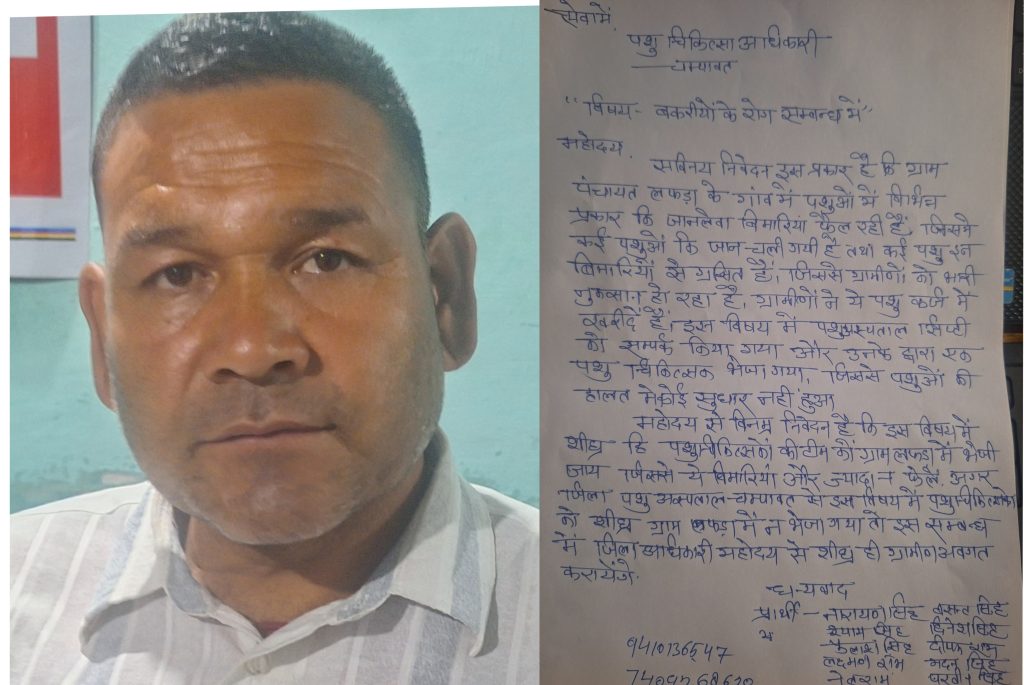 सेवामें,
पशु चिकित्सा अधिकारी
चम्पावत
"विषय - बकरीयों के रोग सम्बन्ध में"
महोदय,
सविनय निवेदन इस प्रकार है कि ग्राम
पंचायत लफड़ा के गांव में पशुओं में विभिन्न
प्रकार कि जानलेवा बिमारियां फैल रही हैं, जिससे
कई पशुओं कि जान चली गयी है तथा कई पशु इन
बिमारियों से ग्रसित हैं, जिससे ग्रामीणों को भारी
नुकसान हो रहा है, ग्रामीणों ने ये पशु कर्ज में
खरीदें हैं, इस विषय में पशुअस्पताल सिप्टी
को सम्पर्क किया गया और उनके द्वारा एक
पशु चिकित्सक भेजा गया, जिससे पशुओं की
हालत में कोई सुधार नहीं हुआ
महोदय से विनम्र निवेदन है कि इस विषय में
शीघ्र हि पशुचिकित्सकों की टीम को ग्राम लफड़ा में भेजी
जाय जिससे ये बिमारियां और ज्यादा न फैलें, अगर
जिला पशु अस्पताल चम्पावत से इस विषय में पशुचिकित्सकों
को शीघ्र ग्राम लफड़ा में न भेजा गया तो इस सम्बन्ध
में जिला अधिकारी महोदय से शीघ्र ही ग्रामीण अवगत
करायेंगे.
धन्यवाद
प्रार्थी - नारायण सिंह बसन्त सिंह
श्याम सिंह दिनेश सिंह
कैलाश सिंह दीपक राम
9410136547
लक्ष्मण राम मदन सिंह